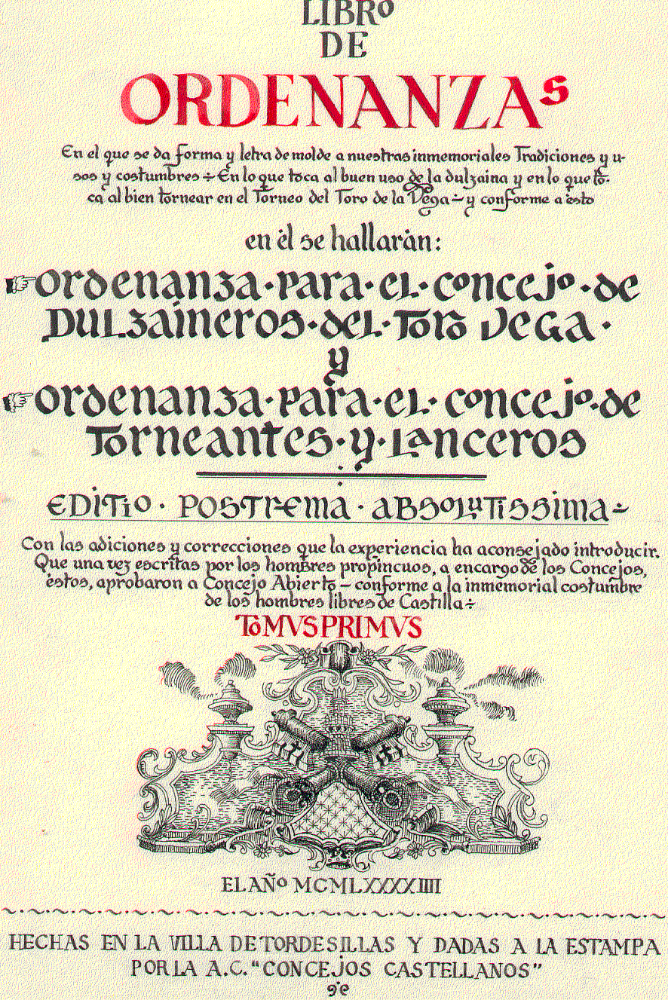 LIBRO
DE
ORDENANZAS
En el que se da forma y letra de molde a nuestras inmemoriales Tradiciones y u-
sos y costumbres ÷ En lo que toca al buen uso de la dulzaina y en lo que to-
ca al bien tornear en el Torneo del Toro de la Vega ÷ y conforme a esto
en él se hallarán:
☞ordenanza·para·el·concejo·de
Dulzaineros·del·Toro Vega·
y
☞ordenanza·para·el·concejo·de
Torneantes·y·Lanceros
EDITIO · POSTREMA · ABSOLUTISSIMA÷
Con las adiciones y correcciones que la experiencia ha aconsejado introducir.
Que una vez escritas por los hombres propincuos, a encargo de los Concejos,
éstos, aprobaron a Concejo Abierto – conforme a la inmemorial costumbre
de los hombres libres de Castilla÷
TOMVS PRIMVS
EL AÑO MCMLXXXXIIII
HECHAS EN LA VILLA DE TORDESILLAS Y DADAS A LA ESTAMPA
POR LA A.C. "CONCEJOS CASTELLANOS"